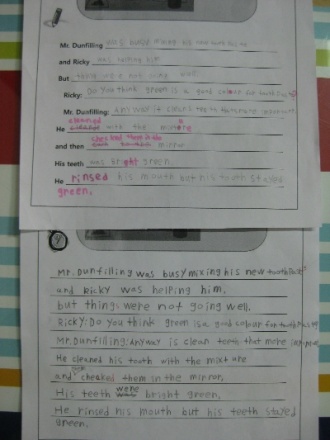 Mr. Dunfilling was busy
and Ricky was helping him
But things were not going well
Ricky: Do you think green is a good colour for tooth
Mr. Dunfilling:
cleaned
He with the
checked them in the
and then mirror
His teeth was bright green.
He rinsed his mouth but his tooth stayed
green.
Mr. Dunfilling was busy mixing his new
and Ricky was helping him.
but things were not going well.
Ricky: Do you think green is a good colour for
Mr. Dunfilling: Anyway is clean teeth that more
He cleaned his tooth with the mixture
and them in the mirror.
His teeth were bright green.
He rinsed his mouth but his teeth stayed
green.